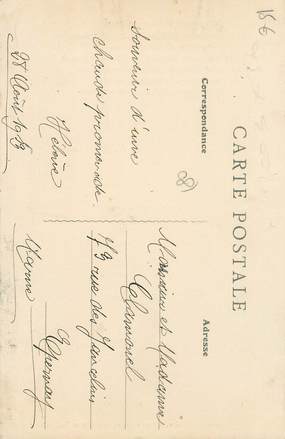 15 €
CARTE POSTALE
Correspondance
Adresse
8
Souvenir d'une
chaude promenade
Hélène
28 Août 1918
Monsieur et Madame
Chamonel
73 rue des Jancelins
Epernay
Marne